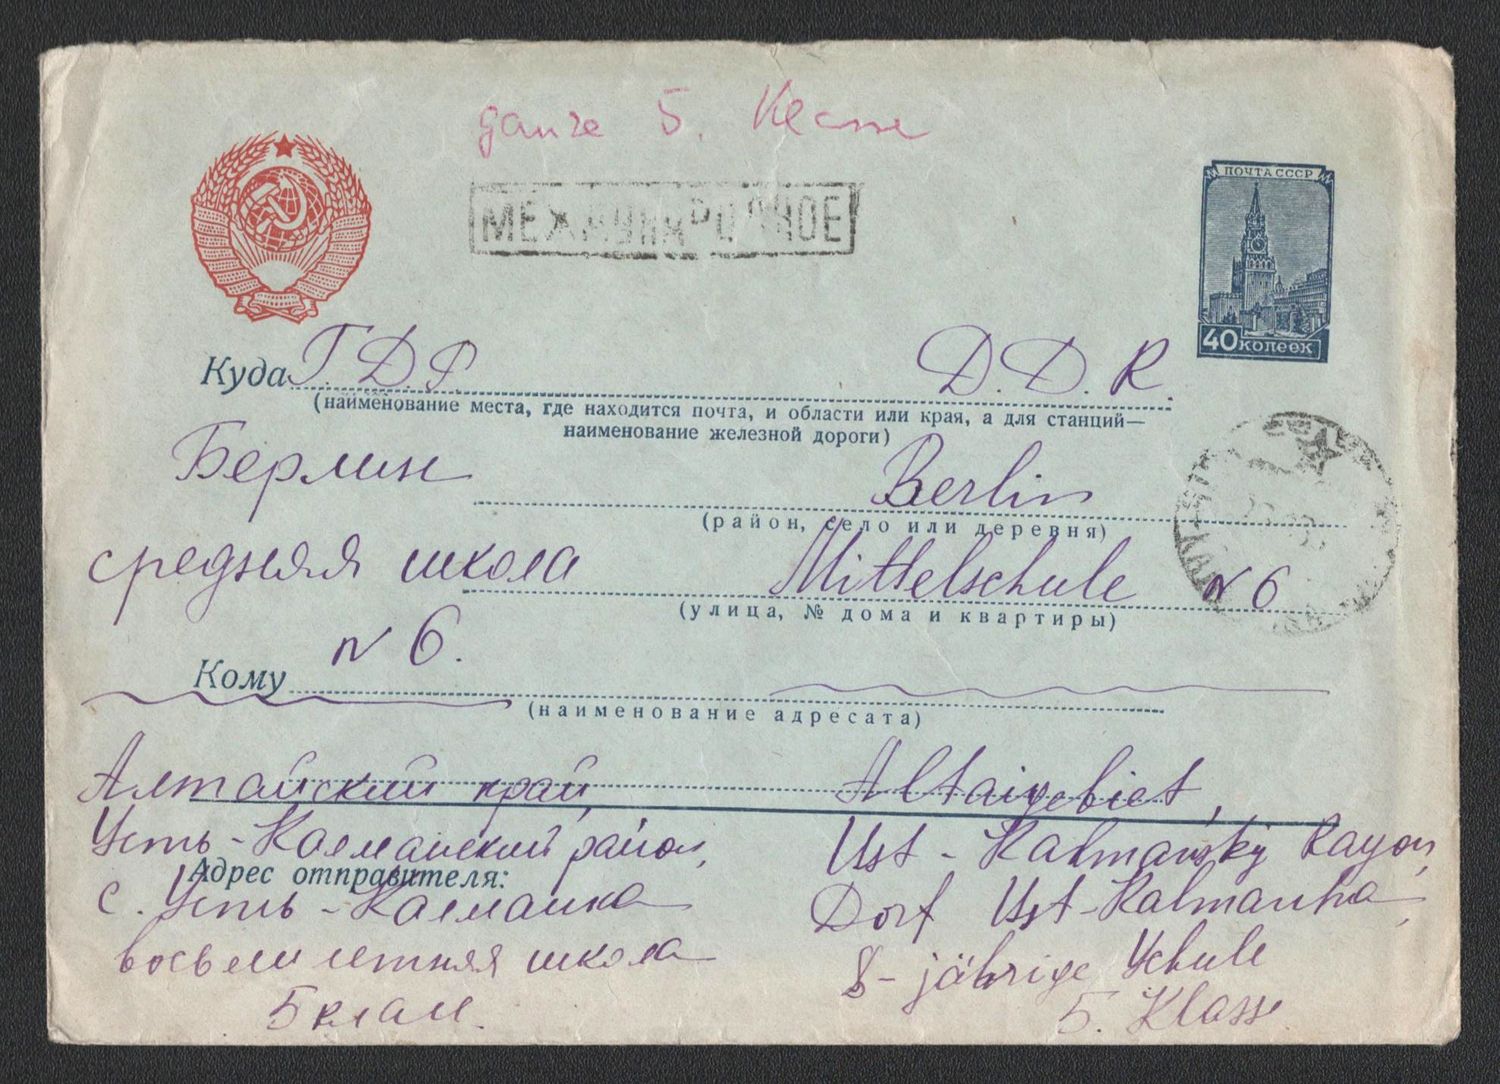 5. Klasse
ПОЧТА СССР
МЕЖДУНАРОДНОЕ
40 копеек
Куда Г.Д.Р. D.D.R.
(наименование места, где находится почта, и области или края, а для станций—
наименование железной дороги)
Берлин Berlin
(район, село или деревня)
средняя школа Mittelschule N 6
(улица, № дома и квартиры)
N 6.
Кому
(наименование адресата)
Алтайский край, Altaigebiet,
Усть-Калманский район, Ust-Kalmansky Rayon,
Адрес отправителя:
с. Усть-Калманка Dorf Ust-Kalmanka,
восьмилетняя школа 8-jährige Schule
5 класс. 5. Klasse